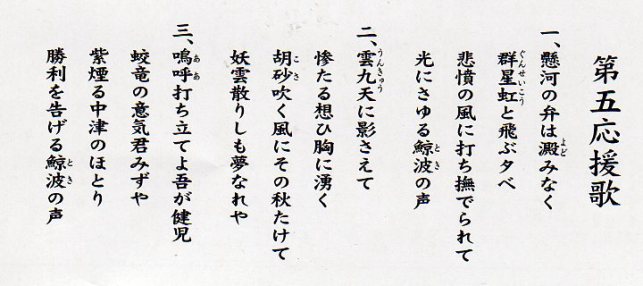 第五応援歌
一、懸河の弁は澱みなく
群星虹と飛ぶ夕べ
悲憤の風に打ち撫でられて
光にさゆる鯨波の声
二、雲九天に影さえて
惨たる想ひ胸に湧く
胡砂吹く風にその秋たけて
妖雲散りしも夢なれや
三、嗚呼打ち立てよ吾が健児
蛟竜の意気君みずや
紫煙る中津のほとり
勝利を告げる鯨波の声